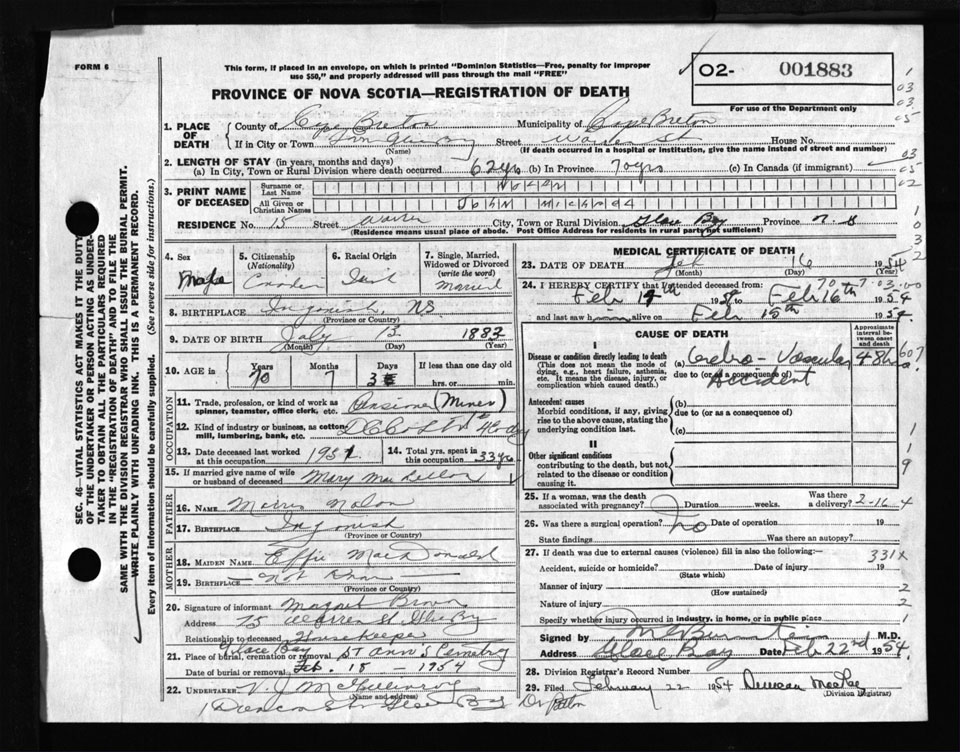 FORM 6
This form, if placed in an envelope, on which is printed "Dominion Statistics—Free, penalty for improper
use $50," and properly addressed will pass through the mail "FREE"
02- 001883
For use of the Department only
PROVINCE OF NOVA SCOTIA—REGISTRATION OF DEATH
1. PLACE OF DEATH
County of Cape Breton Municipality of Cape Breton
If in City or Town Glace Bay Street Warren St House No.
(Name) (If death occurred in a hospital or institution, give the name instead of street and number)
2. LENGTH OF STAY (in years, months and days)
(a) In City, Town or Rural Division where death occurred 62 yrs (b) In Province 70 yrs (c) In Canada (if immigrant)
3. PRINT NAME OF DECEASED
Surname or Last Name
All Given or Christian Names JOHN
RESIDENCE No. 15 Street Warren City, Town or Rural Division Glace Bay Province N.S
(Residence means usual place of abode. Post Office Address for residents in rural parts not sufficient)
4. Sex Male
5. Citizenship (Nationality) Canadian
6. Racial Origin
7. Single, Married, Widowed or Divorced (write the word) Married
8. BIRTHPLACE Ingonish NS
(Province or Country)
9. DATE OF BIRTH July 13 1883
(Month) (Day) (Year)
10. AGE in Years 70 Months 7 Days 3 If less than one day old
hrs. or min.
OCCUPATION
11. Trade, profession, or kind of work as spinner, teamster, office clerk, etc. Pensioner (Miner)
12. Kind of industry or business, as cotton mill, lumbering, bank, etc.
13. Date deceased last worked at this occupation
14. Total yrs. spent in this occupation 33 yrs
15. If married give name of wife or husband of deceased Mary
FATHER
16. Name
17. Birthplace Ingonish
(Province or Country)
MOTHER
18. MAIDEN NAME Effie MacDonald
19. BIRTHPLACE Not
(Province or Country)
20. Signature of informant Margaret Brown
Address 15 Warren St Glace Bay
Relationship to deceased Housekeeper
Glace Bay
21. Place of burial, cremation or removal St Ann's Cemetery
Date of burial or removal Feb. 18 - 1954
22. UNDERTAKER V. J. McGillivray
(Name and address)
MEDICAL CERTIFICATE OF DEATH
23. DATE OF DEATH Feb 16 1954
(Month) (Day) (Year)
24. I HEREBY CERTIFY that I attended deceased from
Feb 14th to Feb 16th 1954
and last saw him alive on Feb 15th 1954
CAUSE OF DEATH
Approximate interval between onset and death
I
Disease or condition directly leading to death
(This does not mean the mode of dying, e.g., heart failure, asthenia, etc. It means the disease, injury, or complication which caused death.)
(a) Cerebro-Vascular Accident 48 hrs
due to (or as a consequence of)
Antecedent causes
Morbid conditions, if any, giving rise to the above cause, stating the underlying condition last.
(b)
due to (or as a consequence of)
(c)
II
Other significant conditions
contributing to the death, but not related to the disease or condition causing it.
25. If a woman, was the death associated with pregnancy? Duration weeks. Was there a delivery? 2-16 4
26. Was there a surgical operation? No Date of operation 19
State findings Was there an autopsy?
27. If death was due to external causes (violence) fill in also the following:— 331X
Accident, suicide or homicide? Date of injury 19
(State which)
Manner of injury 2
(How sustained)
Nature of injury 2
Specify whether injury occurred in industry, in home, or in public place 1
Signed by M.D.
Address Glace Bay Date Feb 22nd 1954
28. Division Registrar's Record Number
29. Filed February 22 1954 Duncan MacRae
(Division Registrar)
SEC. 46—VITAL STATISTICS ACT MAKES IT THE DUTY
OF THE UNDERTAKER OR PERSON ACTING AS UNDER-
TAKER TO OBTAIN ALL THE PARTICULARS REQUIRED
IN THE "REGISTRATION OF DEATH" AND TO FILE THE
SAME WITH THE DIVISION REGISTRAR WHO SHALL ISSUE THE BURIAL PERMIT.
WRITE PLAINLY WITH UNFADING INK. THIS IS A PERMANENT RECORD.
Every item of information should be carefully supplied. (See reverse side for instructions.)